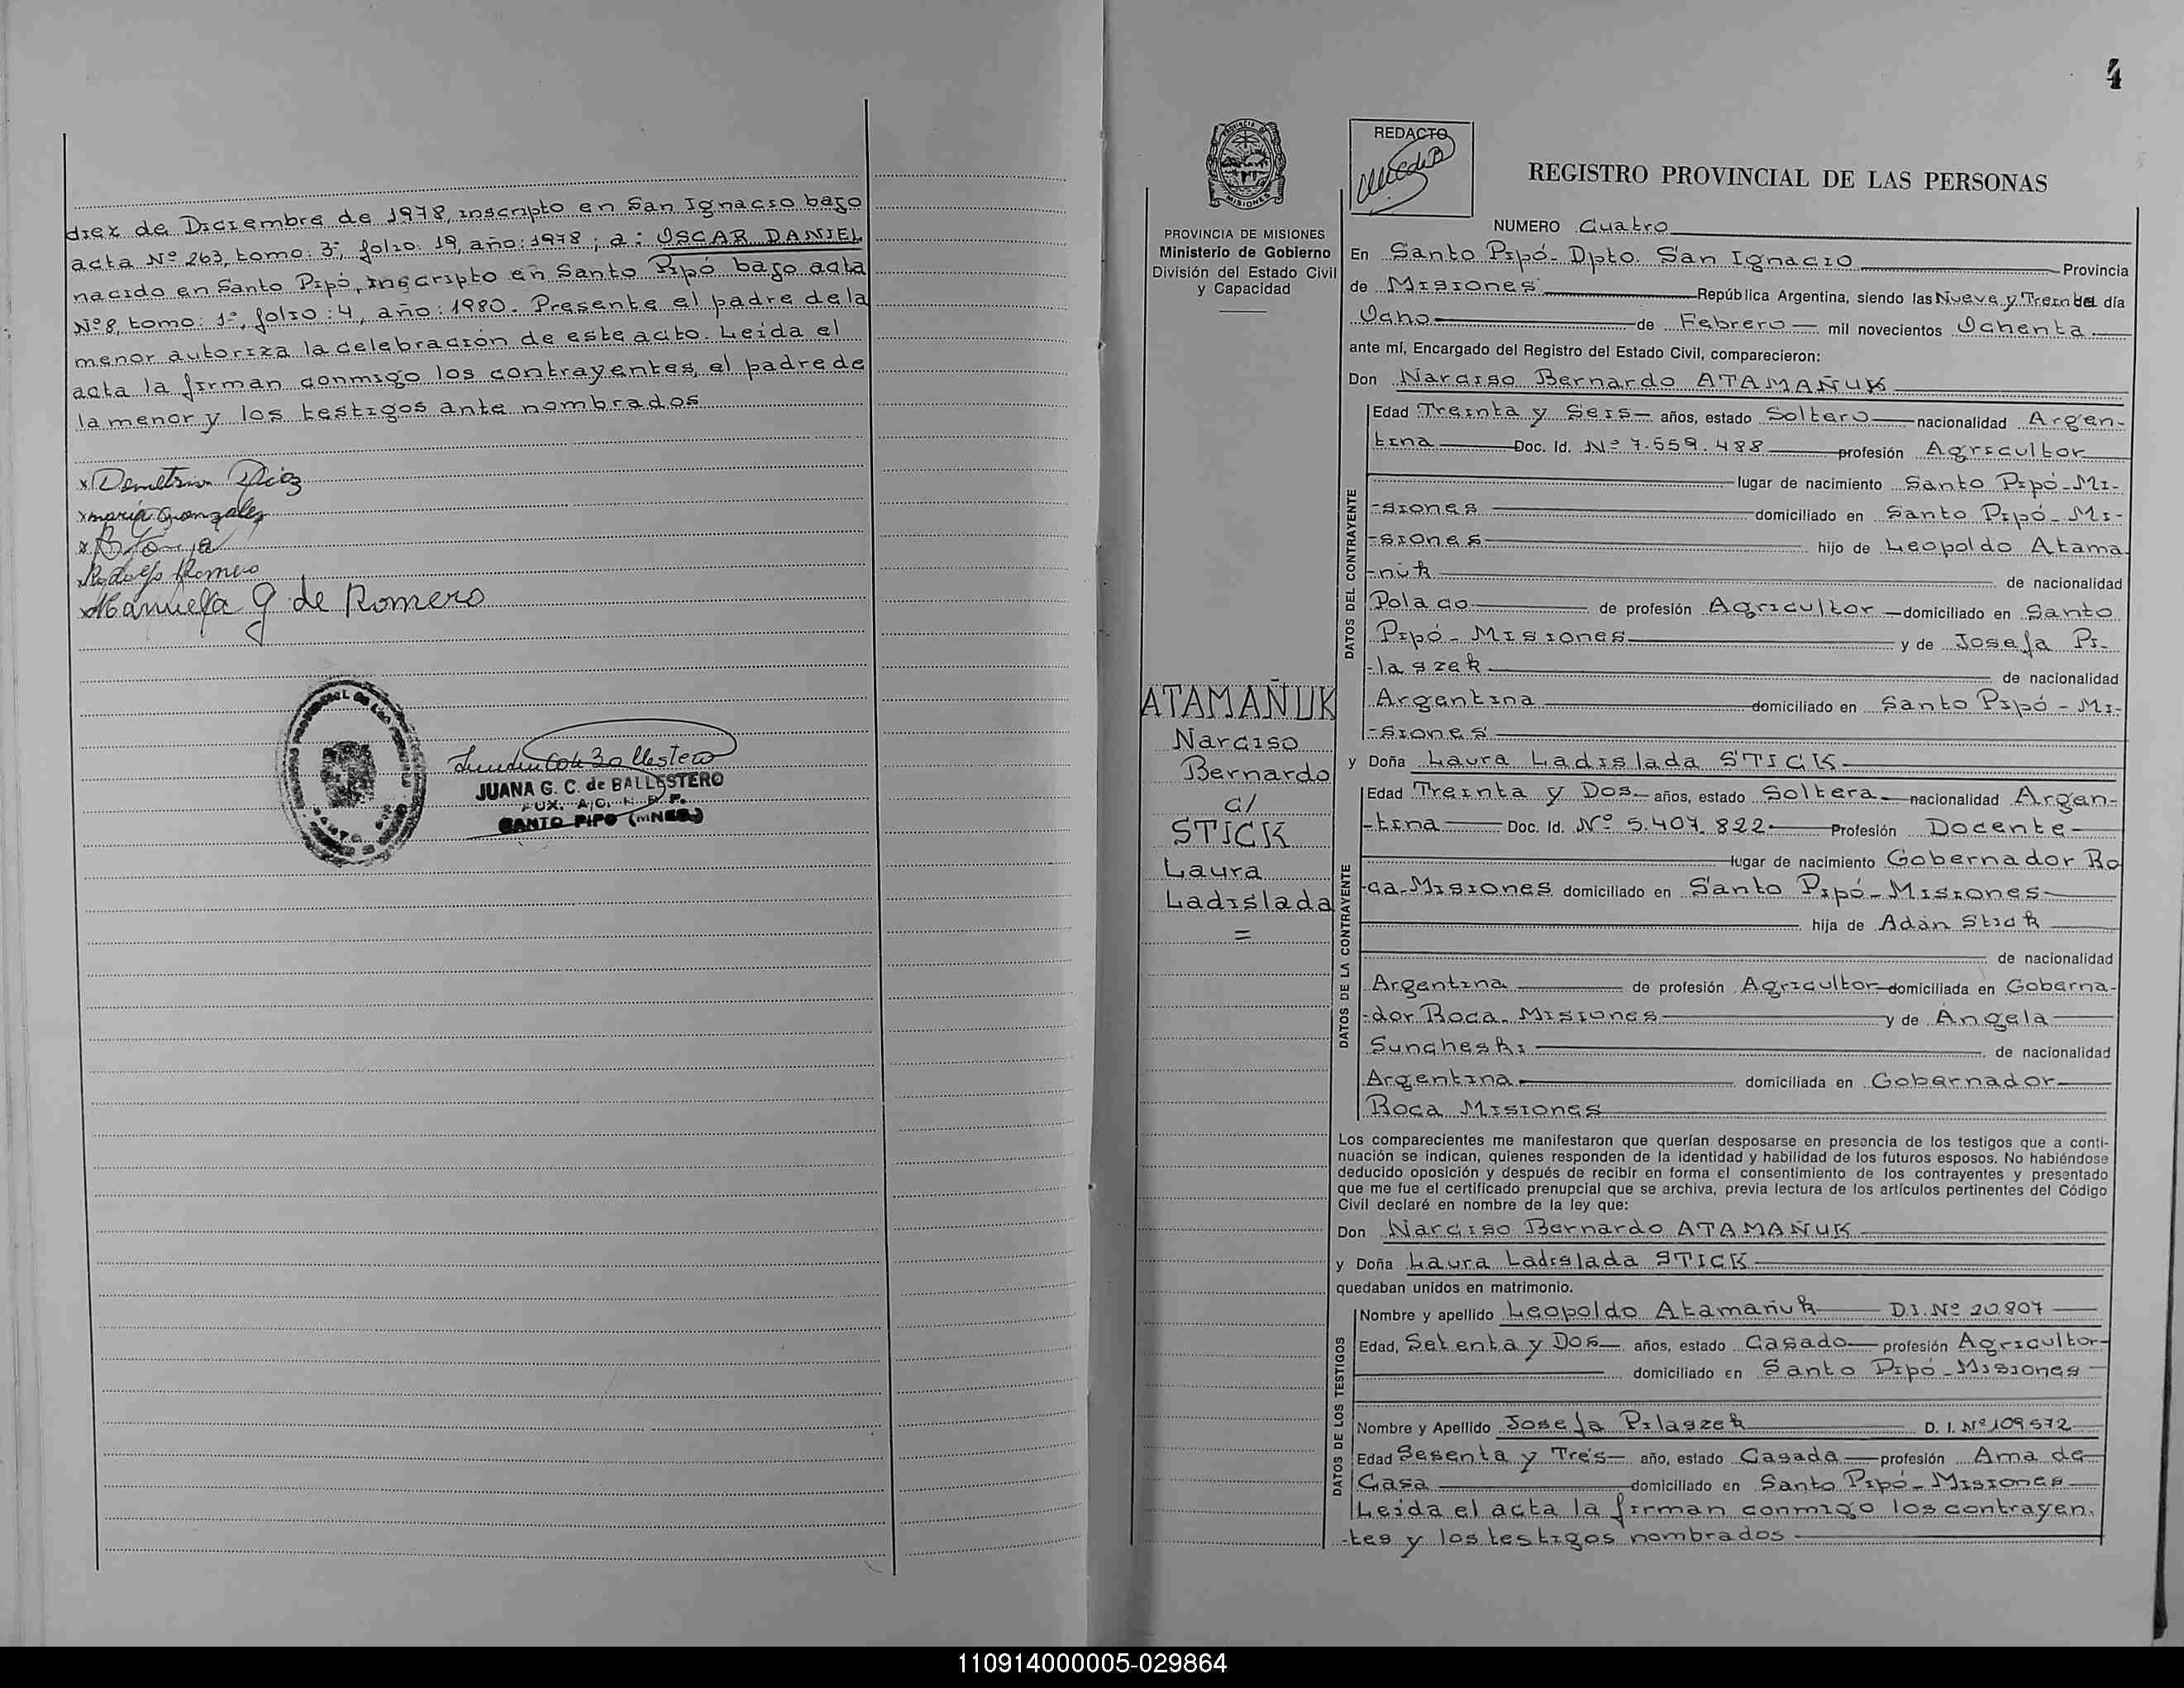 diez de Diciembre de 1978, inscripto en San Ignacio bajo
acta Nº 263, tomo: 3º, folio: 19, año: 1978; a: OSCAR DANIEL
nacido en Santo Pipó, inscripto en Santo Pipó bajo acta
Nº 8, tomo: 1º, folio: 4, año: 1980. Presente el padre de la
menor autoriza la celebración de este acto. Leída el
acta la firman conmigo los contrayentes, el padre de
la menor y los testigos ante nombrados
x
x María Gonzalez
x
Rodolfo Romero
x Manuela G de Romero
JUANA G. C. de BALLESTERO
SANTO PIPO (MNES.)
4
REDACTO
REGISTRO PROVINCIAL DE LAS PERSONAS
PROVINCIA DE MISIONES
Ministerio de Gobierno
División del Estado Civil
y Capacidad
NUMERO Cuatro
En Santo Pipó- Dpto. San Ignacio Provincia
de Misiones República Argentina, siendo las Nueve y Trein del día
Ocho de Febrero mil novecientos Ochenta
ante mí, Encargado del Registro del Estado Civil, comparecieron:
Don Narciso Bernardo ATAMAÑUK
DATOS DEL CONTRAYENTE
Edad Treinta y Seis años, estado Soltero nacionalidad Argen-
tina Doc. Id. Nº 7.559.488 profesión Agricultor
lugar de nacimiento Santo Pipó-Mi-
-siones domiciliado en Santo Pipó-Mi-
-siones hijo de Leopoldo Atama
-ñuk de nacionalidad
Polaco de profesión Agricultor domiciliado en Santo
Pipó- Misiones y de Josefa Pi-
-laszek de nacionalidad
Argentina domiciliado en Santo Pipó-Mi-
-siones
ATAMAÑUK
Narciso
Bernardo
c/
STICK
Laura
Ladislada
=
y Doña Laura Ladislada STICK
DATOS DE LA CONTRAYENTE
Edad Treinta y Dos años, estado Soltera nacionalidad Argen-
-tina Doc. Id. Nº 5.407.822 Profesión Docente
lugar de nacimiento Gobernador Ro
-ca-Misiones domiciliado en Santo Pipó-Misiones
hija de Adán Stick
de nacionalidad
Argentina de profesión Agricultor domiciliada en Goberna-
-dor Roca. Misiones y de Angela
Suncheski de nacionalidad
Argentina domiciliada en Gobernador
Roca Misiones
Los comparecientes me manifestaron que querían desposarse en presencia de los testigos que a conti-
nuación se indican, quienes responden de la identidad y habilidad de los futuros esposos. No habiéndose
deducido oposición y después de recibir en forma el consentimiento de los contrayentes y presentado
que me fue el certificado prenupcial que se archiva, previa lectura de los artículos pertinentes del Código
Civil declaré en nombre de la ley que:
Don Narciso Bernardo ATAMAÑUK
y Doña Laura Ladislada STICK
quedaban unidos en matrimonio.
DATOS DE LOS TESTIGOS
Nombre y apellido Leopoldo Atamañuk D.I. Nº 20.807
Edad, Setenta y Dos años, estado Casado profesión Agricultor
domiciliado en Santo Pipó-Misiones
Nombre y Apellido Josefa Pilaszek D. I. Nº 109572
Edad Sesenta y Tres año, estado Casada profesión Ama de
Casa domiciliado en Santo Pipó-Misiones
Leida el acta la firman conmigo los contrayen.
-tes y los testigos nombrados
110914000005-029864